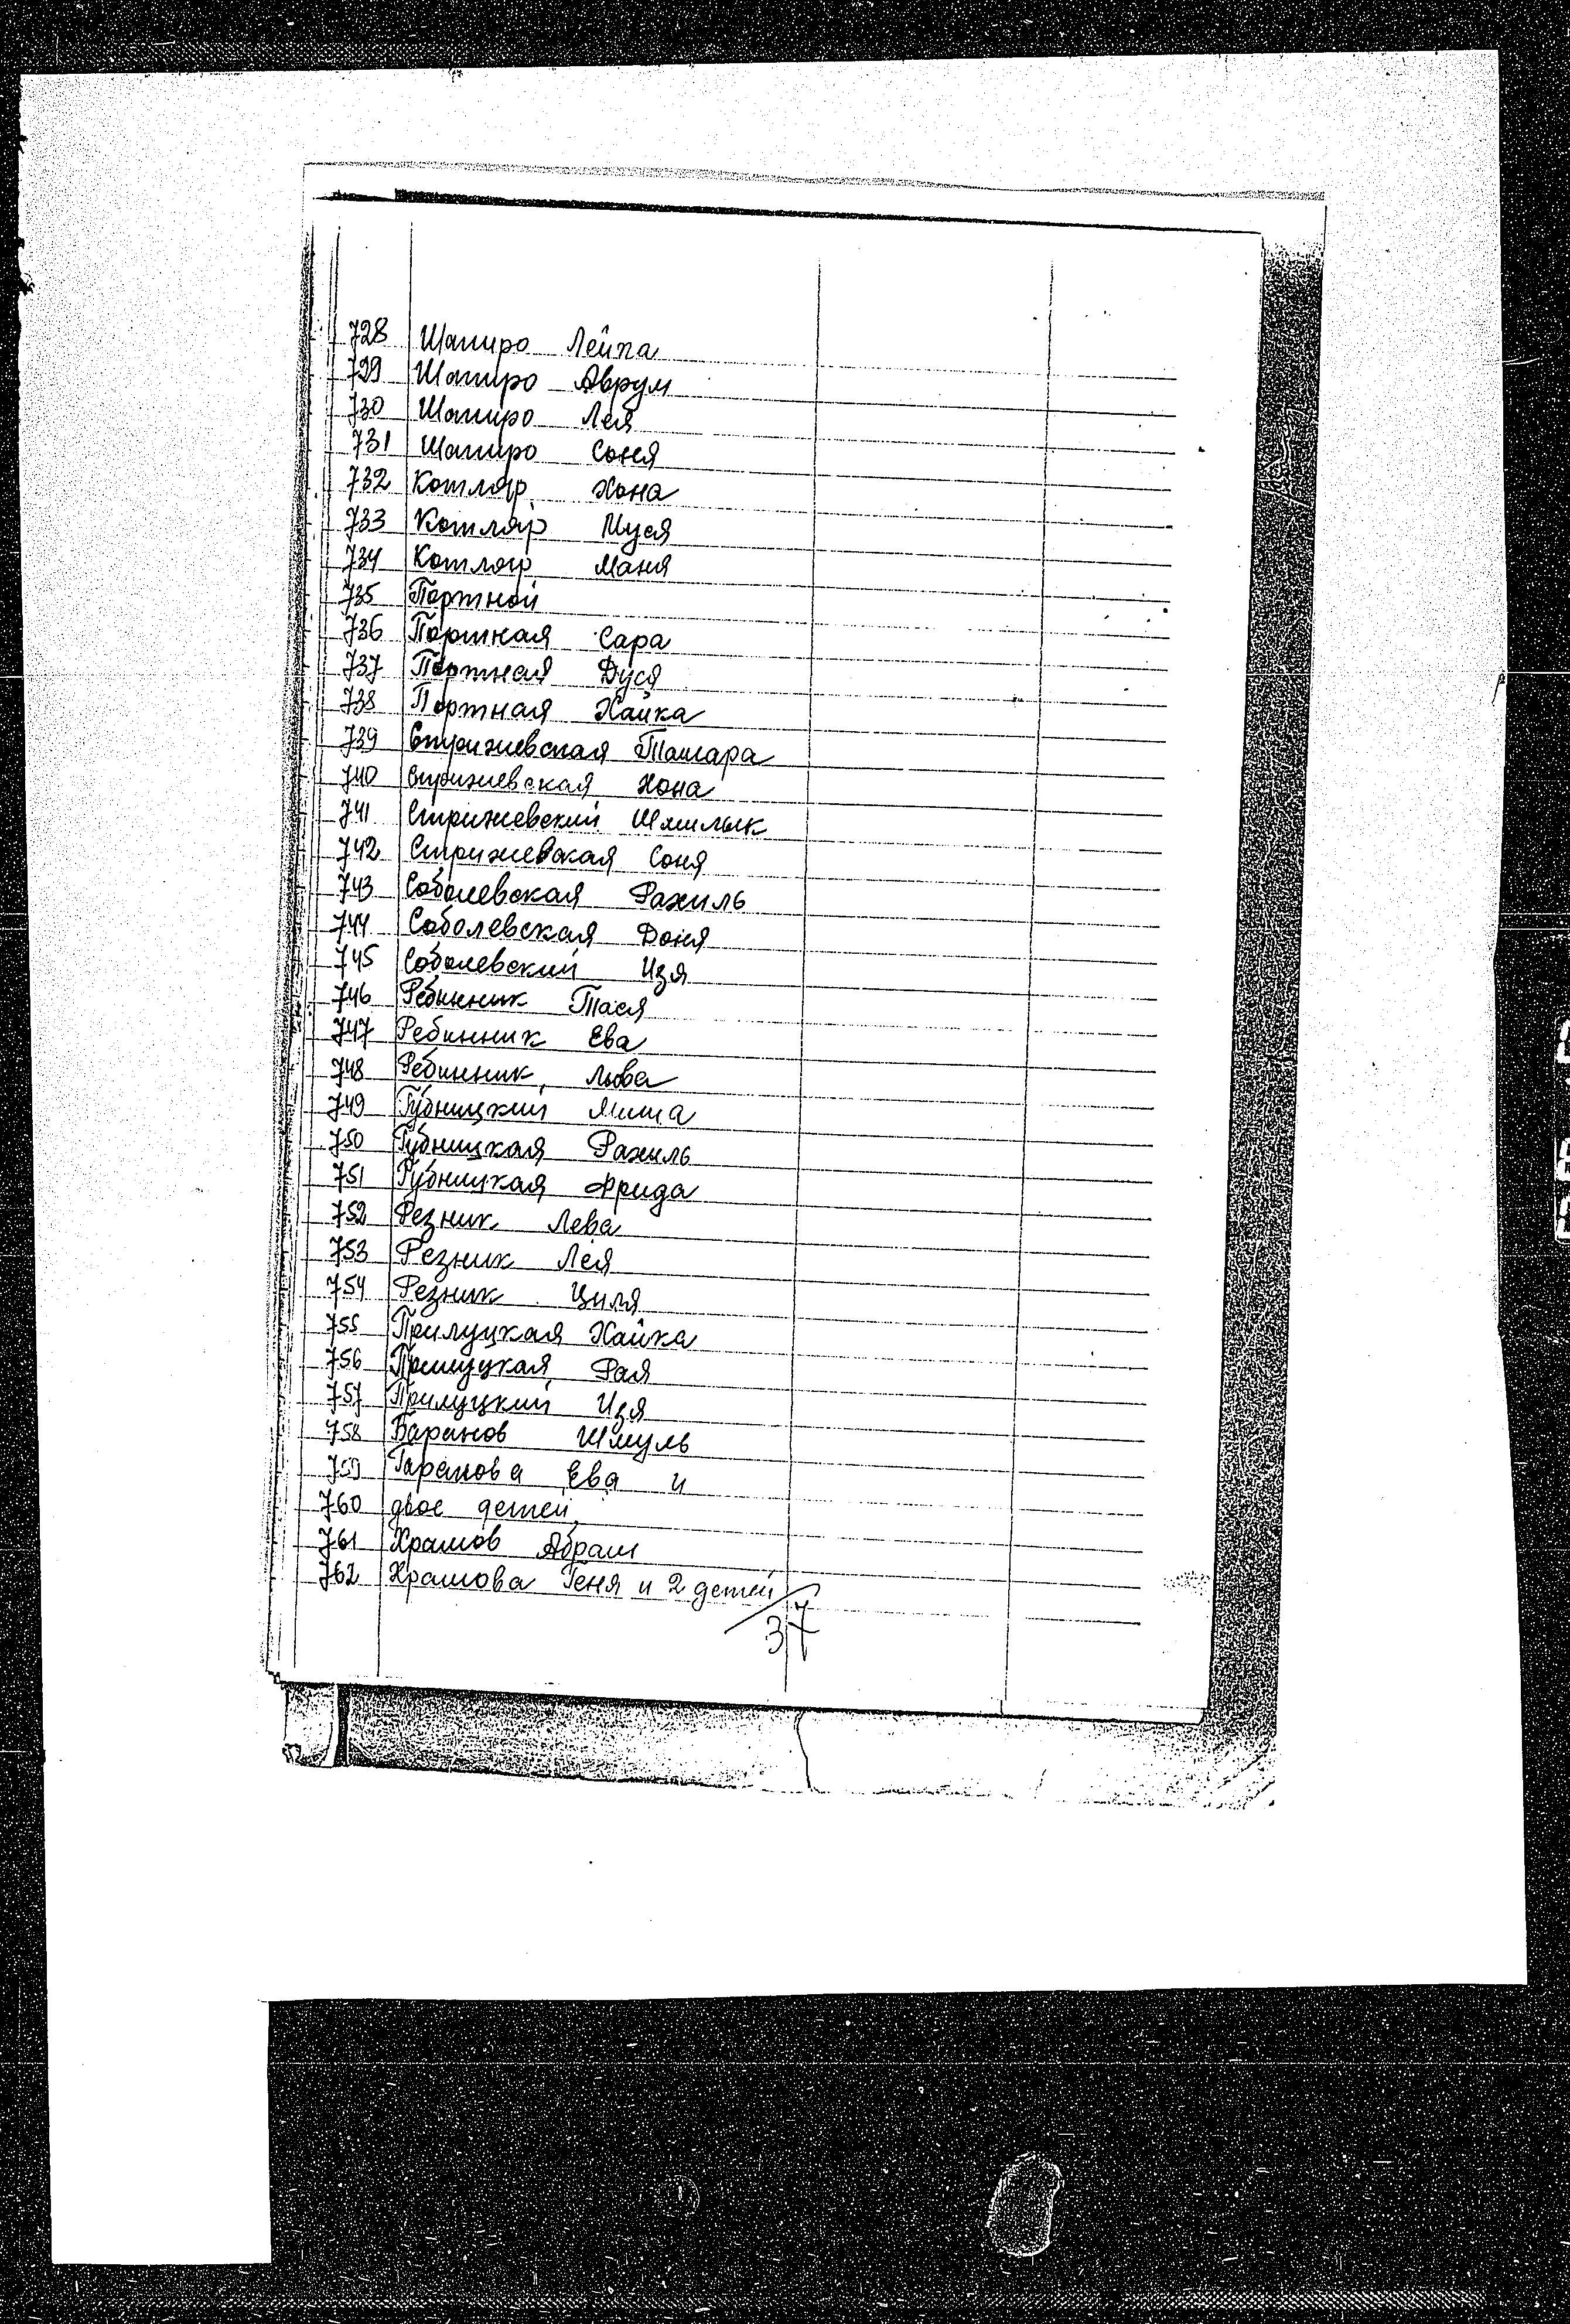 728 Шапиро Лейпа
729 Шапиро Аврум
730 Шапиро Лея
731 Шапиро Соня
732 Котляр Хона
733 Котляр Муся
734 Котляр Маня
735 Портной
736 Портная Сара
737 Портная Дуся
738 Портная Хайка
739 Стрижевская Тамара
740 Стрижевская Хона
741 Стрижевский Шмилык
742 Стрижевская Соня
743 Соболевская Рахиль
744 Соболевская Доня
745 Соболевский Изя
746 Ребинник Тася
747 Ребинник Ева
748 Ребинник Лыва
749 Рубницкий Миша
750 Рубницкая Рахиль
751 Рубницкая Фрида
752 Резник Лева
753 Резник Лея
754 Резник Циля
755 Прилуцкая Хайка
756 Прилуцкая Рая
757 Прилуцкий Изя
758 Баранов Шмуль
759 Таранова Ева и
760 двое детей
761 Храмов Абрам
762 Храмова Геня и 2 детей
37